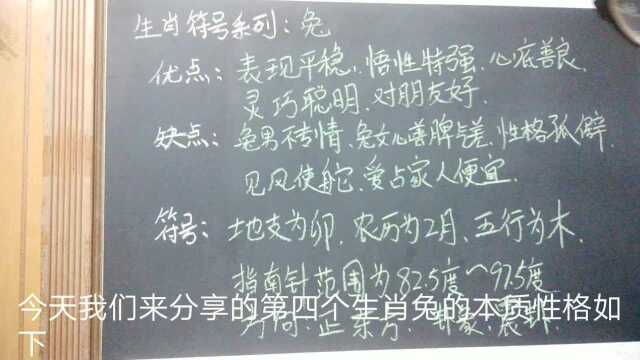 生肖符号系列：兔
优点：表现平稳、悟性特强、心底善良、
灵巧聪明、对朋友好.
缺点：兔男不专情、兔女儿善脾气差、性格孤僻、
见风使舵、爱占家人便宜.
符号：地支为卯、农历为2月、五行为木、
指南针范围为82.5度~97.5度
方向：正东方、卦象：震卦.
今天我们来分享的第四个生肖兔的本质性格如
下